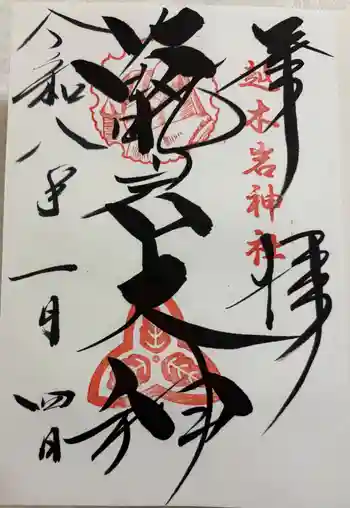 奉拝
越木岩神社
甑岩大神
令和八年一月四日